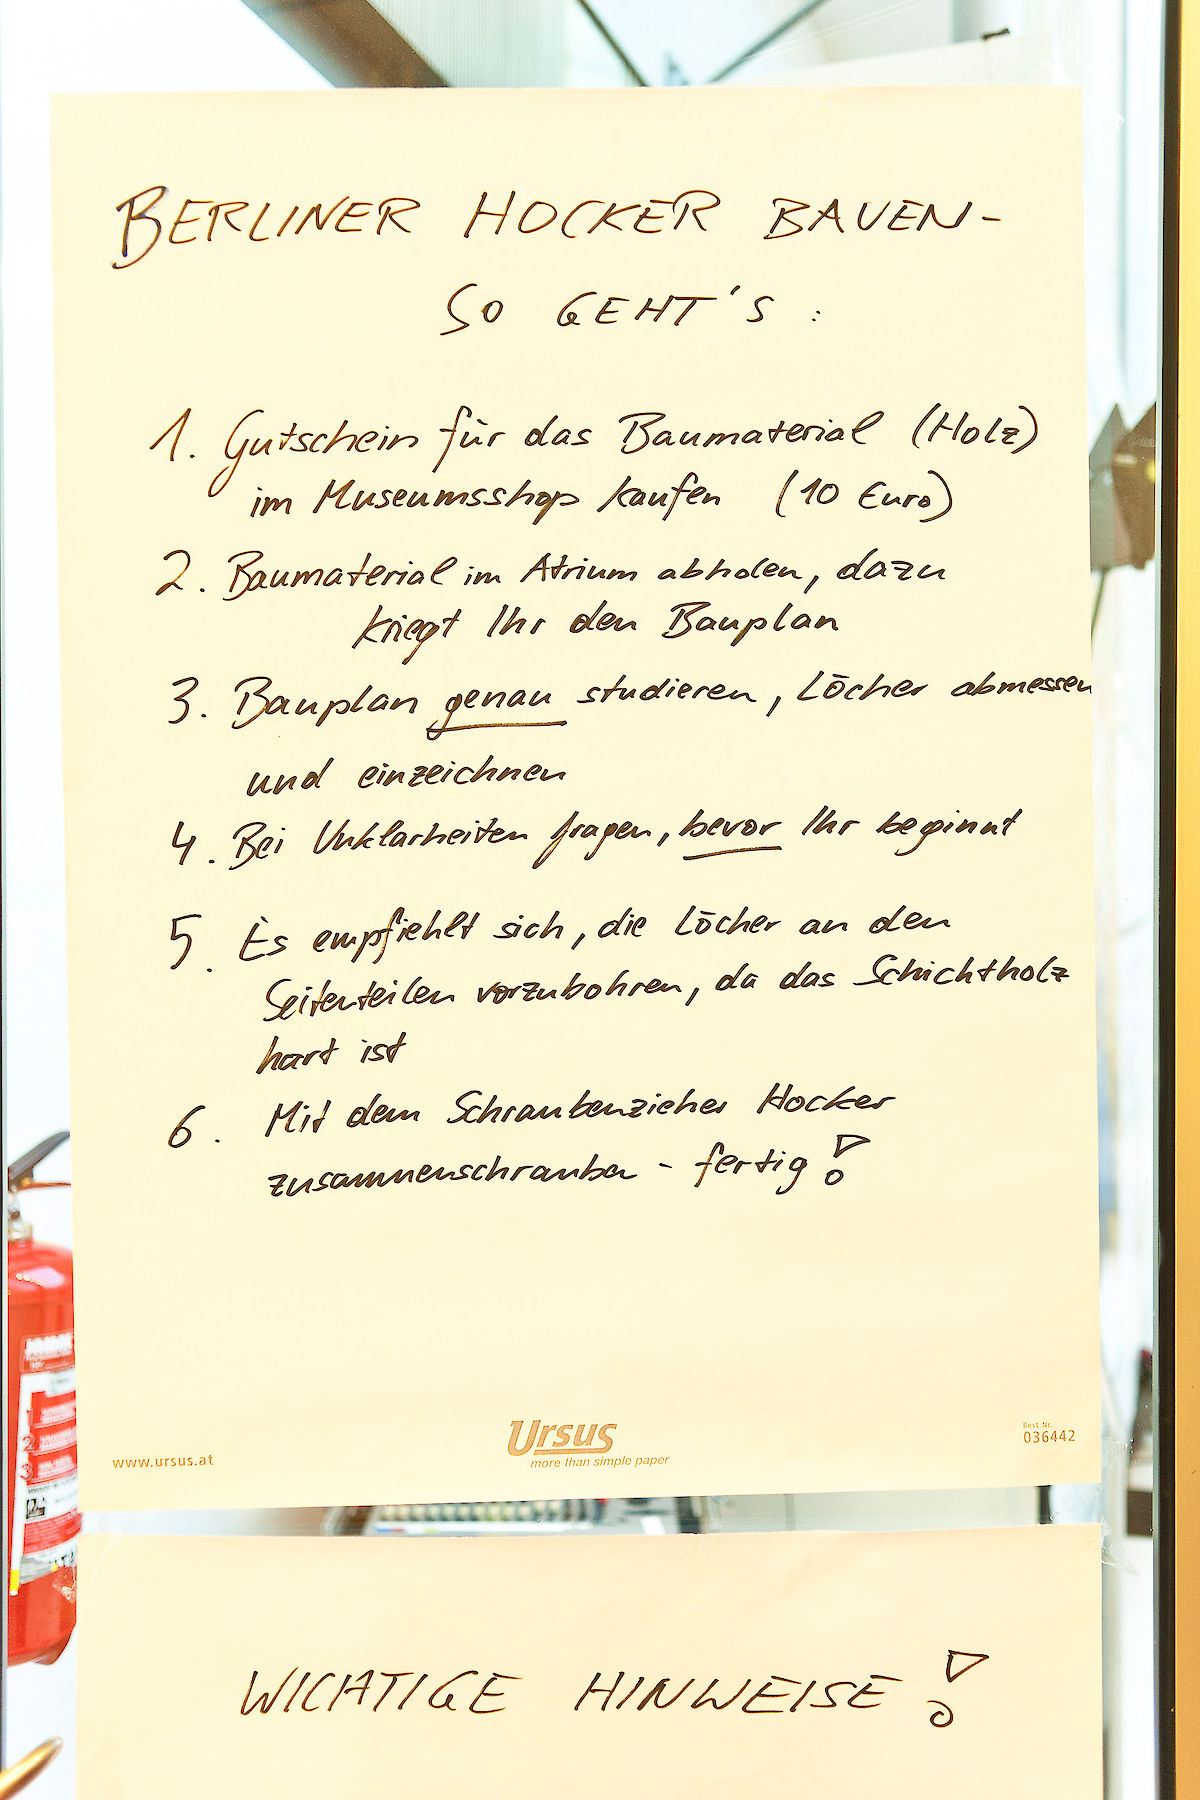 BERLINER HOCKER BAUEN-
SO GEHT'S :
1. Gutschein für das Baumaterial (Holz)
im Museumsshop kaufen (10 Euro)
2. Baumaterial im Atrium abholen, dazu
kriegt Ihr den Bauplan
3. Bauplan genau studieren, Löcher abmessen
und einzeichnen
4. Bei Unklarheiten fragen, bevor Ihr beginnt
5. Es empfiehlt sich, die Löcher an den
Seitenteilen vorzubohren, da das Schichtholz
hart ist
6. Mit dem Schraubenzieher Hocker
zusammenschrauben - fertig!
www.ursus.at
Ursus
more than simple paper
Best. Nr.
036442
WICHTIGE HINWEISE!
1
2
3